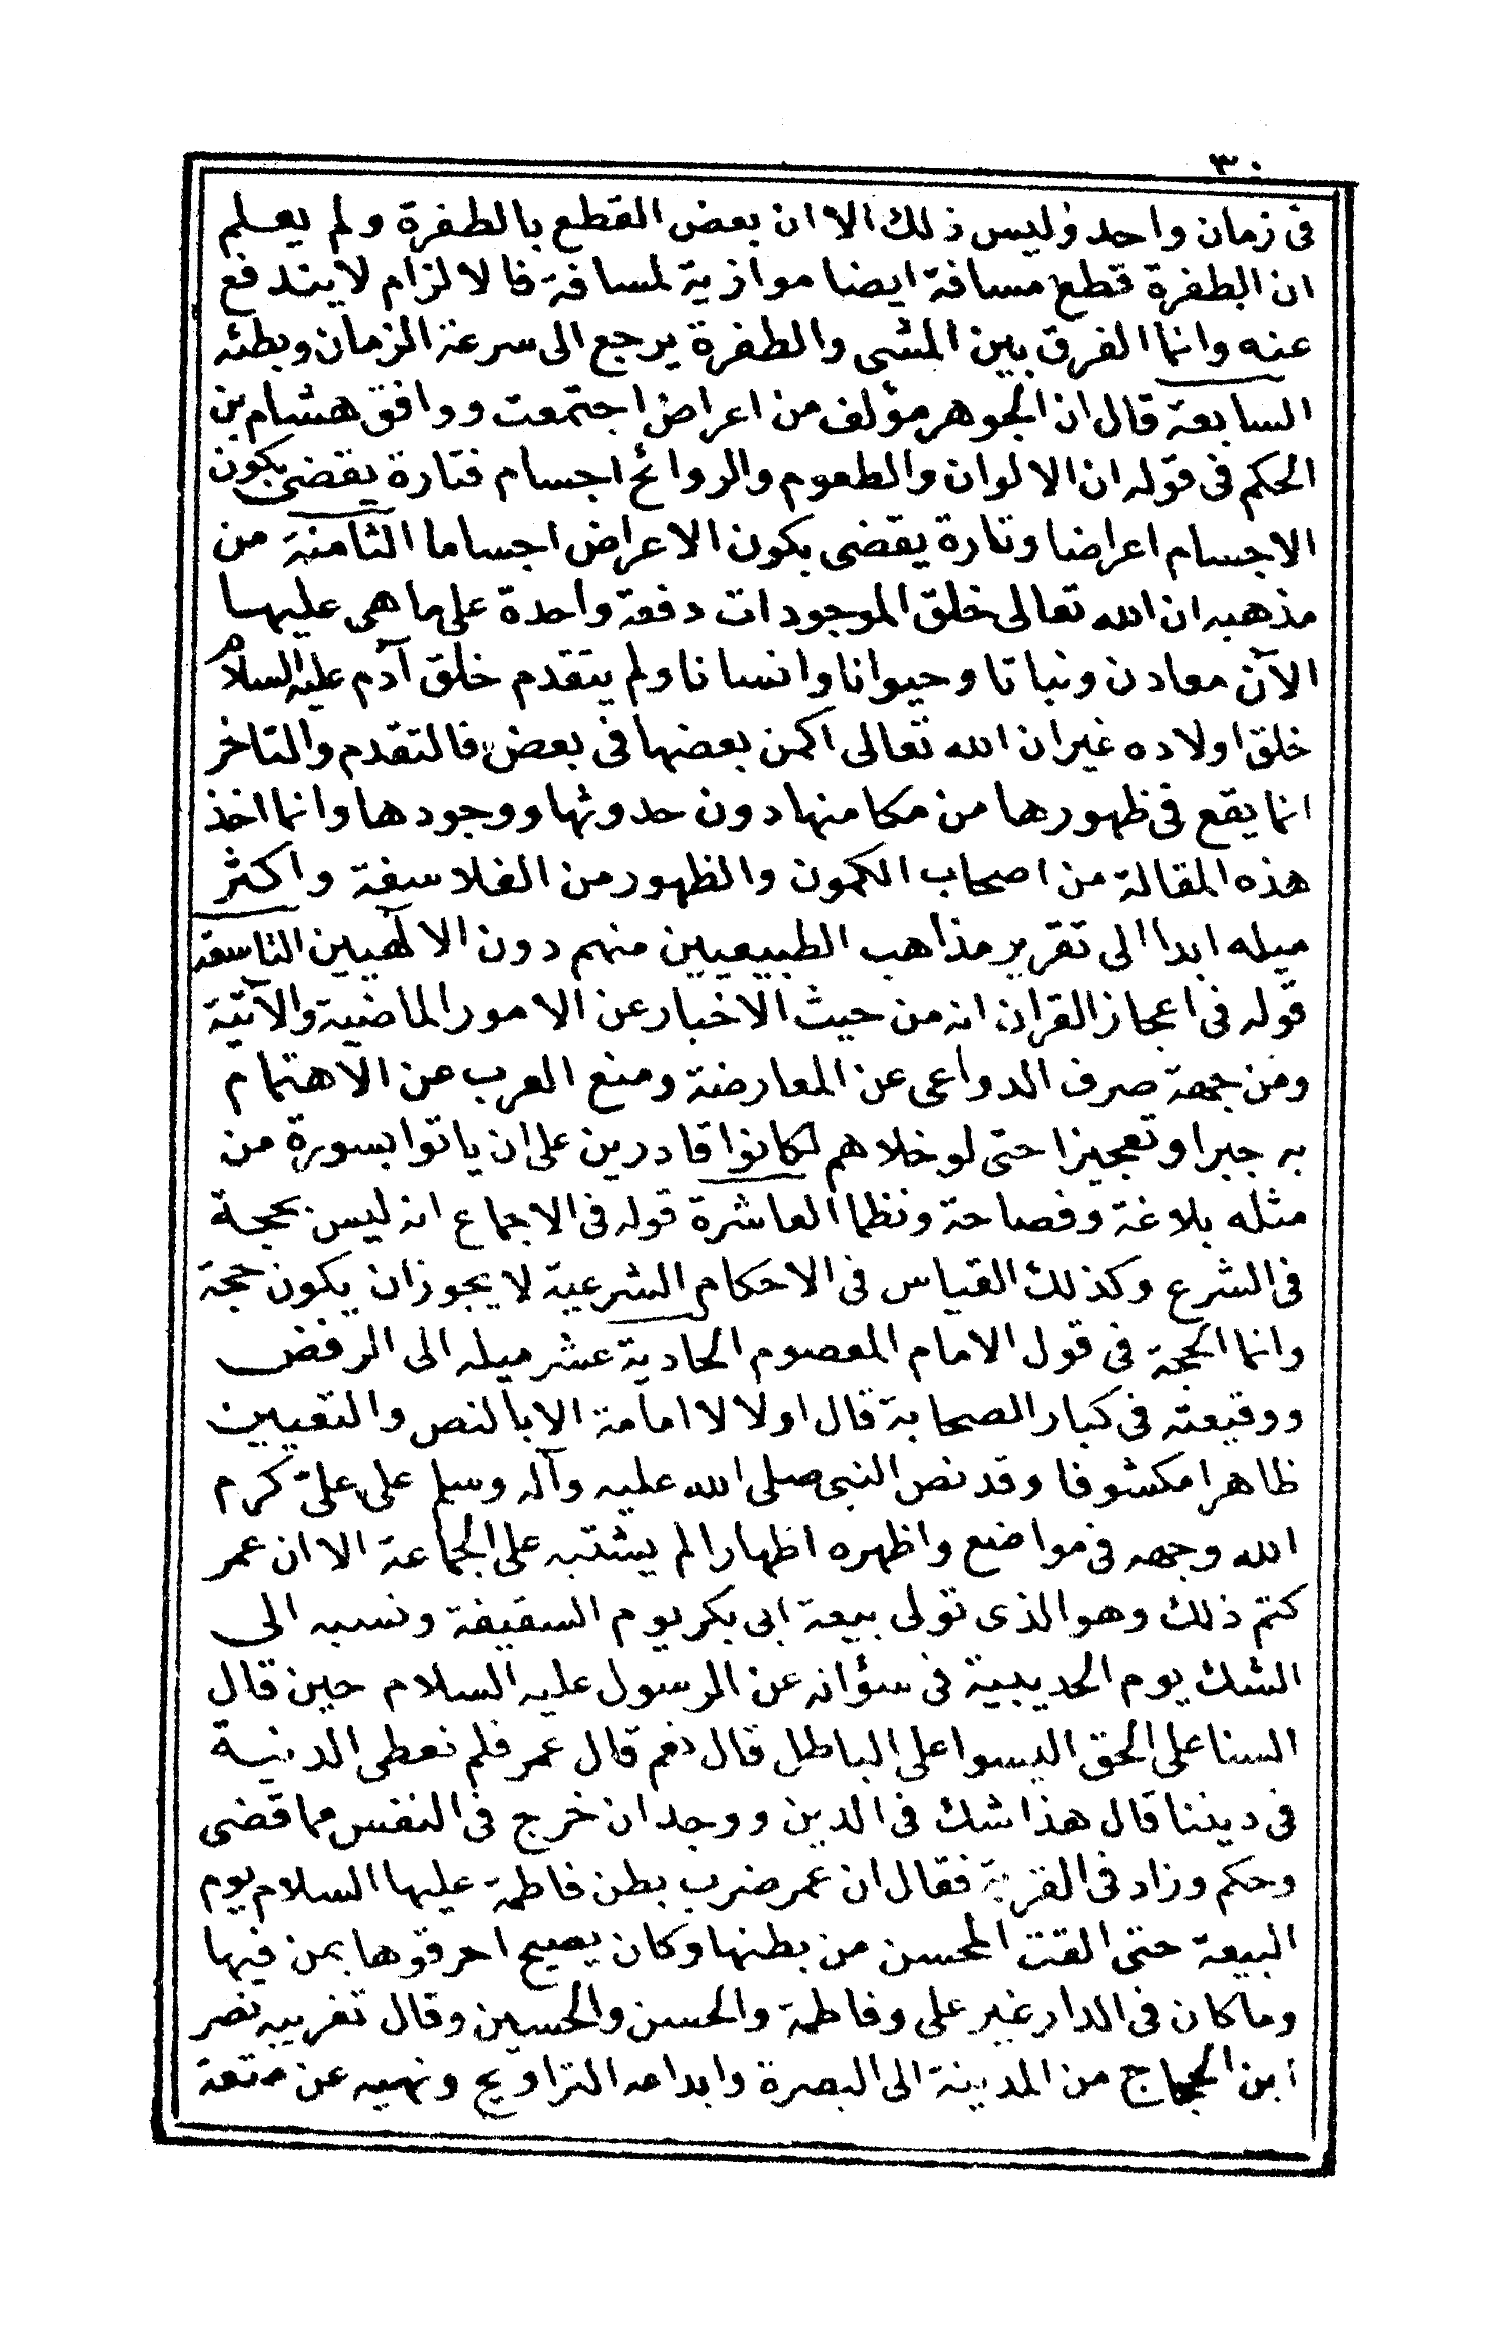 ٣٠
فى زمان واحد وليس ذلك الا ان بعض القطع بالطفرة ولم يعلم
ان الطفرة قطع مسافة ايضا موازية لمسافة فالالزام لايندفع
عنه وانما الفرق بين المشى والطفرة يرجع الى سرعة الزمان وبطئه
السابعة قال ان الجوهر مؤلف من اعراض اجتمعت ووافق هشام بن
الحكم فى قوله ان الالوان والطعوم والروائح اجسام فتارة يقضى بكون
الاجسام اعراضا وتارة يقضى بكون الاعراض اجساما الثامنة من
مذهبه ان الله تعالى خلق الموجودات دفعة واحدة على ما هى عليها
الآن معادن ونباتا وحيوانا وانسانا ولم يتقدم خلق آدم عليه السلام
خلق اولاده غير ان الله تعالى اكمن بعضها فى بعض فالتقدم والتاخر
انما يقع فى ظهورها من مكامنها دون حدوثها ووجودها وانما اخذ
هذه المقالة من اصحاب الكمون والظهور من الفلاسفة واكثر
ميله ابدا الى تقرير مذاهب الطبيعيين منهم دون الالهيين التاسعة
قوله فى اعجاز القران انه من حيث الاخبار عن الامور الماضية والآتية
ومن جهة صرف الدواعى عن المعارضة ومنع العرب عن الاهتمام
به جبرا وتعجيزا حتى لو خلاهم لكانوا قادرين على ان ياتوا بسورة من
مثله بلاغة وفصاحة ونظما العاشرة قوله فى الاجماع انه ليس بحجة
فى الشرع وكذلك القياس فى الاحكام الشرعية لا يجوز ان يكون حجة
وانما الحجة فى قول الامام المعصوم الحادية عشر ميله الى الرفض
ووقيعته فى كبار الصحابة قال اولا لا امامة الا بالنص والتعيين
ظاهرا مكشوفا وقد نص النبى صلى الله عليه وآله وسلم على علىّ كرم
الله وجهه فى مواضع واظهره اظهارا لم يشتبه على الجماعة الا ان عمر
كتم ذلك وهو الذى تولى بيعة ابى بكر يوم السقيفة ونسبه الى
الشك يوم الحديبية فى سؤانه عن الرسول عليه السلام حين قال
السنا على الحق اليسوا على الباطل قال نعم قال عمر فلم نعطى الدنية
فى ديننا قال هذا شك فى الدين ووجدان خرج فى النفس مما قضى
وحكم وزاد فى الفرية فقال ان عمر ضرب بطن فاطمة عليها السلام يوم
البيعة حتى القت المحسن من بطنها وكان يصيح احرقوها بمن فيها
وما كان فى الدار غير على وفاطمة والحسن والحسين وقال تغريبه نصر
ابن الحجاج من المدينة الى البصرة وابداعه التراويح ونهيه عن متعة